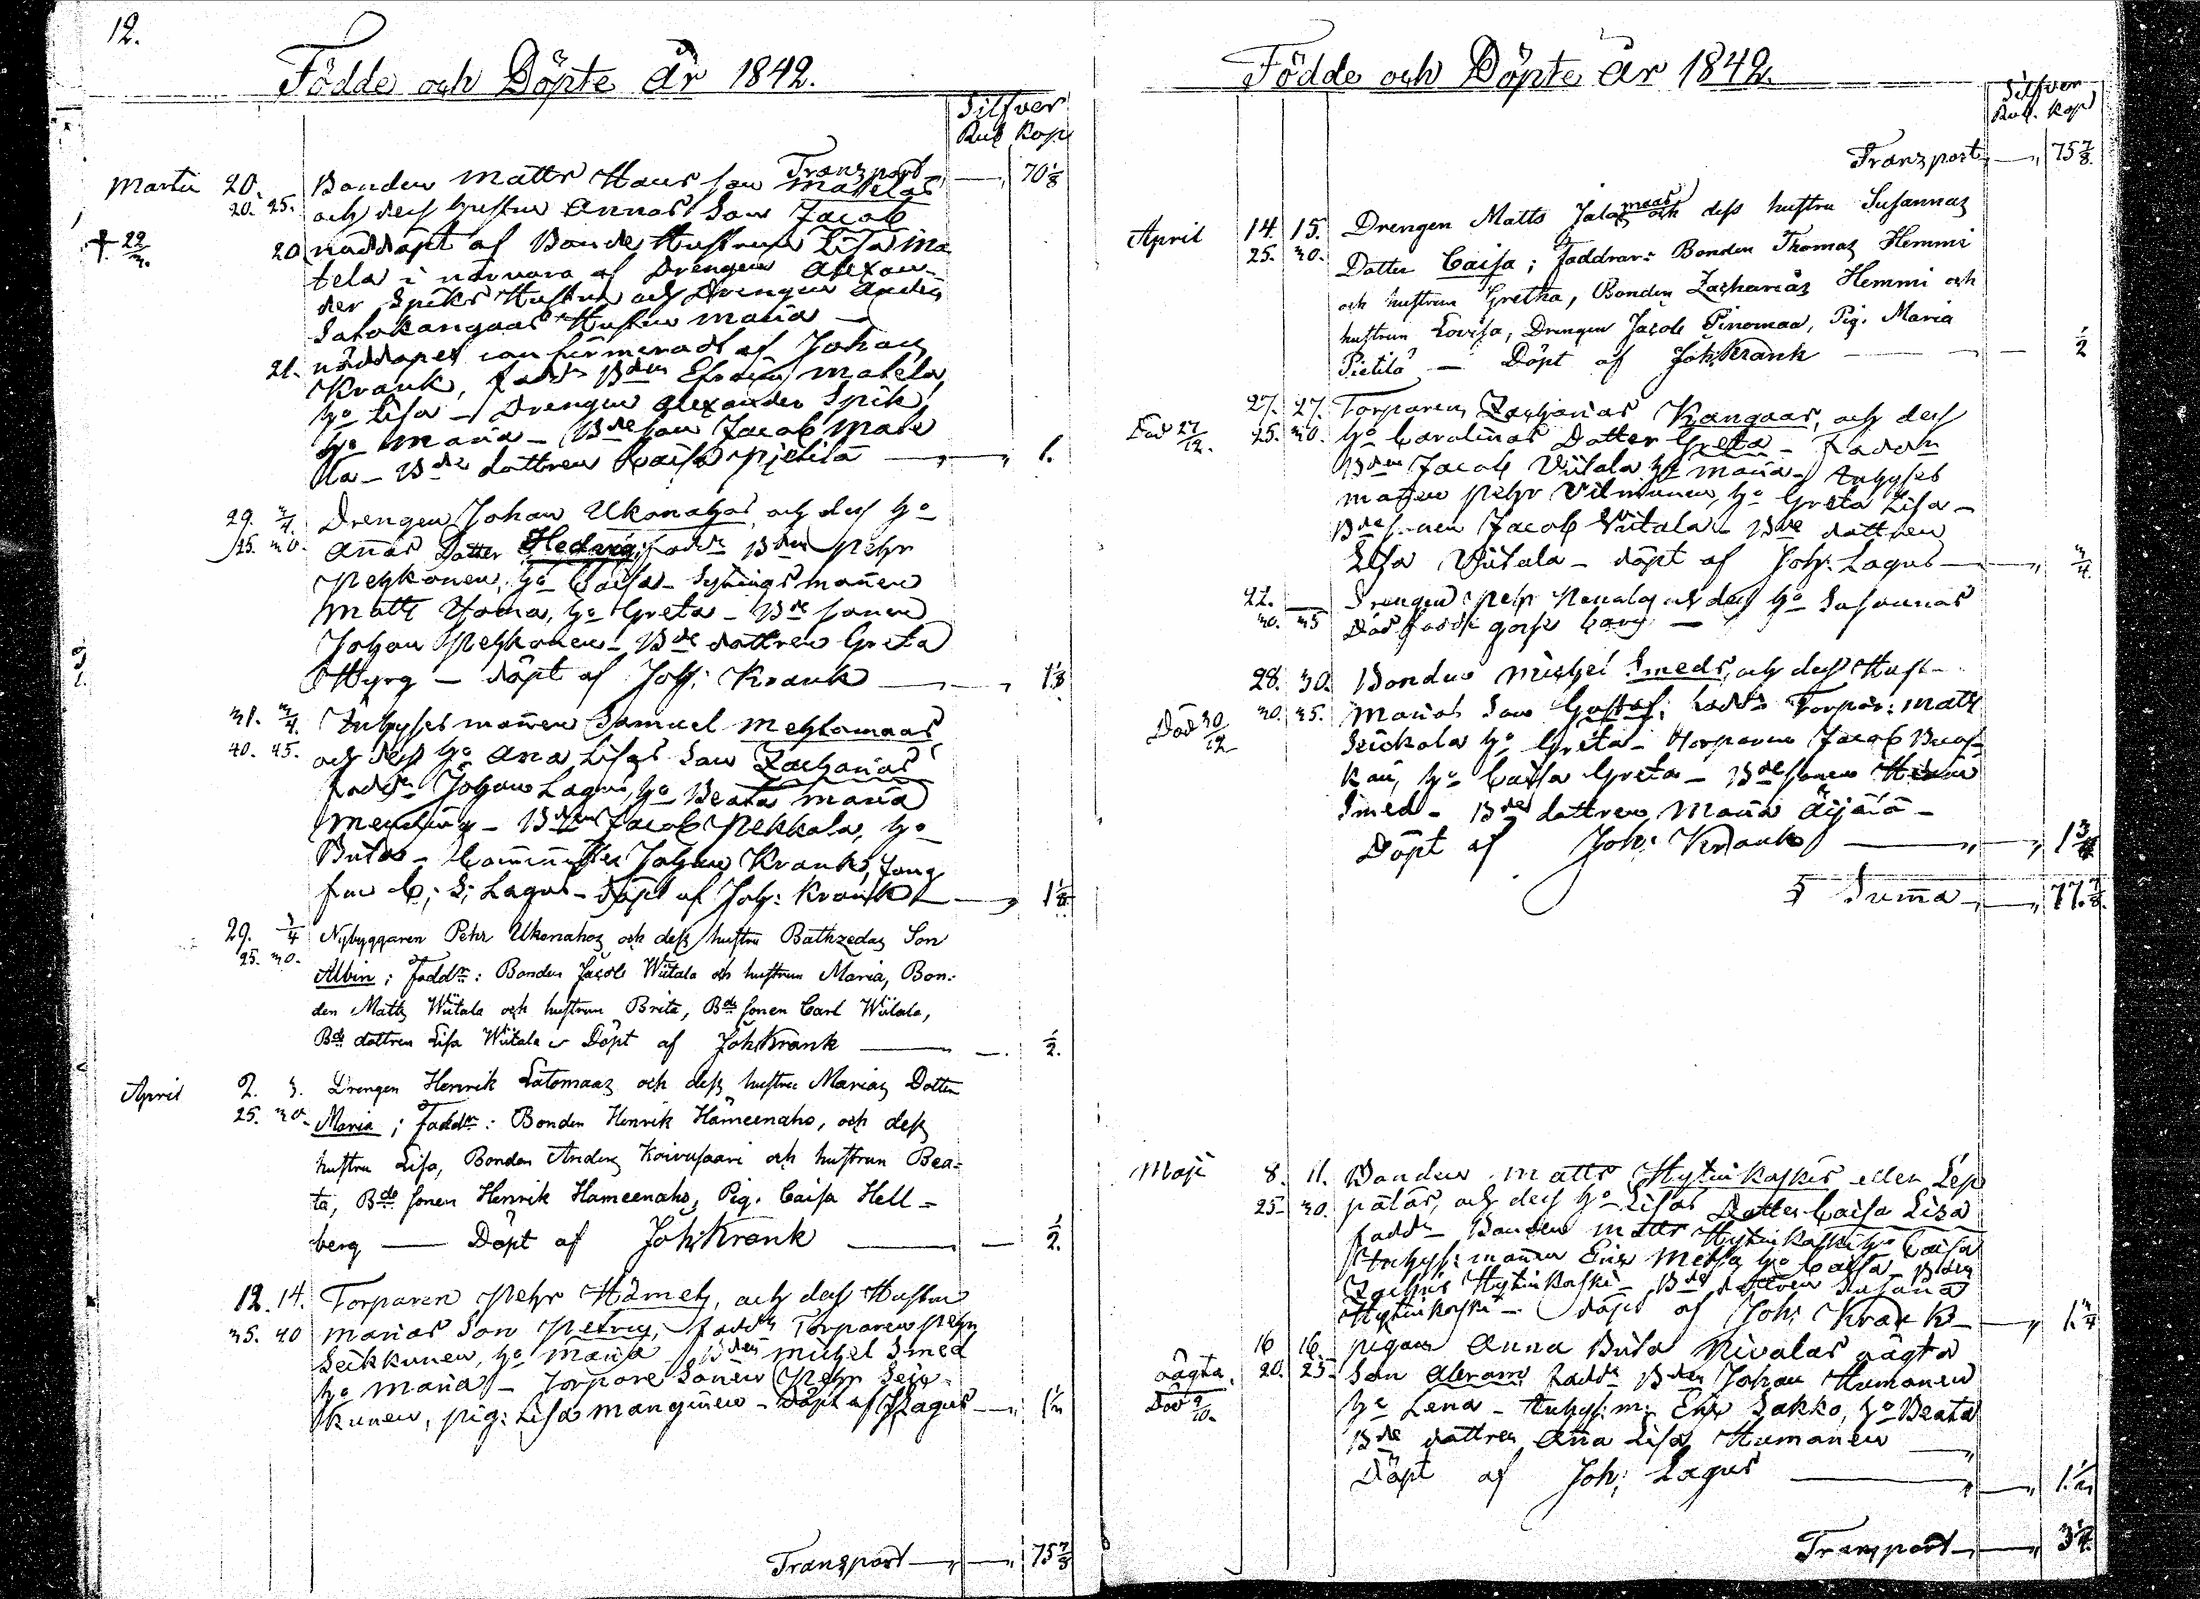 12.
Födde och Döpte År 1842.
Silfver
Rub Kop
Transport — „ 70 1/8
Martii 20. Bonden Matts Hans son Matelas
20. 25. och dess hustru Annas Son Jacob
† 22/3. 20 nöddöpt af Bonde Hustrun Lisa Ma
tela i närvaro af Drengen Alexan-
der Spiks Hustru och Drengen Anders
Salokangas Hustru Maria —
21. nöddopet confirmeradt af Johan
Krank, fadd. Bden Efraim Matela
ho Lisa — Drengen Alexander Spik,
ho Maria — Bde son Jacob Mate
la — Bde dottren Caisa Pietilä — „ — „ 1.
29. 3/4 Drengen Johan Ukonahos och dess ho
25. 30. Annas Dotter Hedvig; fadd. Bden Pehr
Pehkonen, ho Caisa — Sytnings mannen
Matts Homa, ho Greta — Bde sonen
Johan Pehkonen — Bde dottren Greta
Hyry — döpt af Joh: Krank — „ — „ 1 1/8
31. 3/4. Inhyses mannen Samuel Mehtomaas
40. 45. och dess ho Ana Lisas Son Zacharias
fadd. Johan Lagus, ho Beata Maria
— Bden Jacob Pekkala, ho
Brita — Johan Krank, Jung
frun C: S: Lagus — Döpt af Joh: Krank — „ 1 1/8
29. 3/4 Nybyggaren Pehr Ukonahos och dess hustru Bathzedas Son
25. 30. Albin; Faddr: Bonden Jacob Wiitala och hustrun Maria, Bon-
den Matts Wiitala och hustrun Brita, Bde sonen Carl Wiitala,
Bde dottren Lisa Wiitala — Döpt af Joh: Krank — — 1/2.
April 2. 3. Drengen Henrik Latomaas och dess hustru Marias Dotter
25. 30. Maria; Faddr: Bonden Henrik Hämeenaho, och dess
hustru Lisa, Bonden Anders Koivusaari och hustrun Bea-
ta, Bde sonen Henrik Hämeenaho, Pig. Caisa Hell-
berg — Döpt af Joh: Krank — — 1/2.
12. 14. Torparen Pehr Hämeh, och dess Hustru
35. 40 Marias Son Petrus, fadd. Torparen Pehr
Seikkunen, ho Maria — Bden Michel Smed
ho Maria — Torpare Sonen Pehr Seik-
kunen, pig: Lisa Manginen — Döpt af J Lagus — „ 1 1/2
Transport — „ — „ 75 7/8
Födde och Döpte År 1842.
Silfver
Rub. Kop
Transport — „ 75 7/8.
April 14. 15. Drengen Matts Jalasmaas och dess hustru Susannas
25. 30. Dotter Caisa; Faddrar: Bonden Thomas Hemmi
och hustrun Gretha, Bonden Zacharias Hemmi och
hustrun Lovisa, Drengen Jacob Pinomaa, Pig. Maria
Pietilä — Döpt af Joh: Krank — — 1/2
27. 27. Torparen Zacharias Kangas, och dess
Död 27/12. 25. 30. ho Carolinas Dotter Greta — Faddr
Bden Jacob Viitala ho Maria — Inhyses
mannen Pehr Vilmunen, ho Greta Lisa —
Bde sonen Jacob Viitala — Bde dottren
Lisa Viitala — döpt af Joh: Lagus — „ 3/4.
22. — Drengen Pehr och dess ho Susannas
30. 35 Död född —
28. 30. Bonden Michel Smeds, och dess Hust-
Död 30/12 30. 35. Marias Son Gustaf; fadd. Torpar: Matts
Seickola ho Greta — Torparen Jacob
ho Caisa Greta — Bde sonen
Smed — Bde dottren Maria Äijälä —
Döpt af Joh: Krank — „ — „ 1 3/4
Summa — „ — „ 77. 7/8.
Maji 8. 11. Bonden Matts Hytinkoskis eller Lep
25. 30. pälas, och dess ho Lisas Dotter Caisa Lisa
fadd. Bonden Matts Hytinkoski ho Caisa
Inhyses mannen Eric Metsa ho Caisa — Bden
Hytinkoski — Bde dottren Susana
Hytinkoski — döpt af Joh: Krank — „ 1. 3/4
16 16. Pigan Anna Brita Nivalas oägta
oägta. 20. 25. Son Abram fadd. Bden Johan Humanen
Död 9/10. ho Lena — Inhys: m: Eric Sakko, ho Beata
Bde dottren Ana Lisa Humanen —
Döpt af Joh: Lagus — „ — „ 1 1/2
Transport — „ — „ 3 1/4.